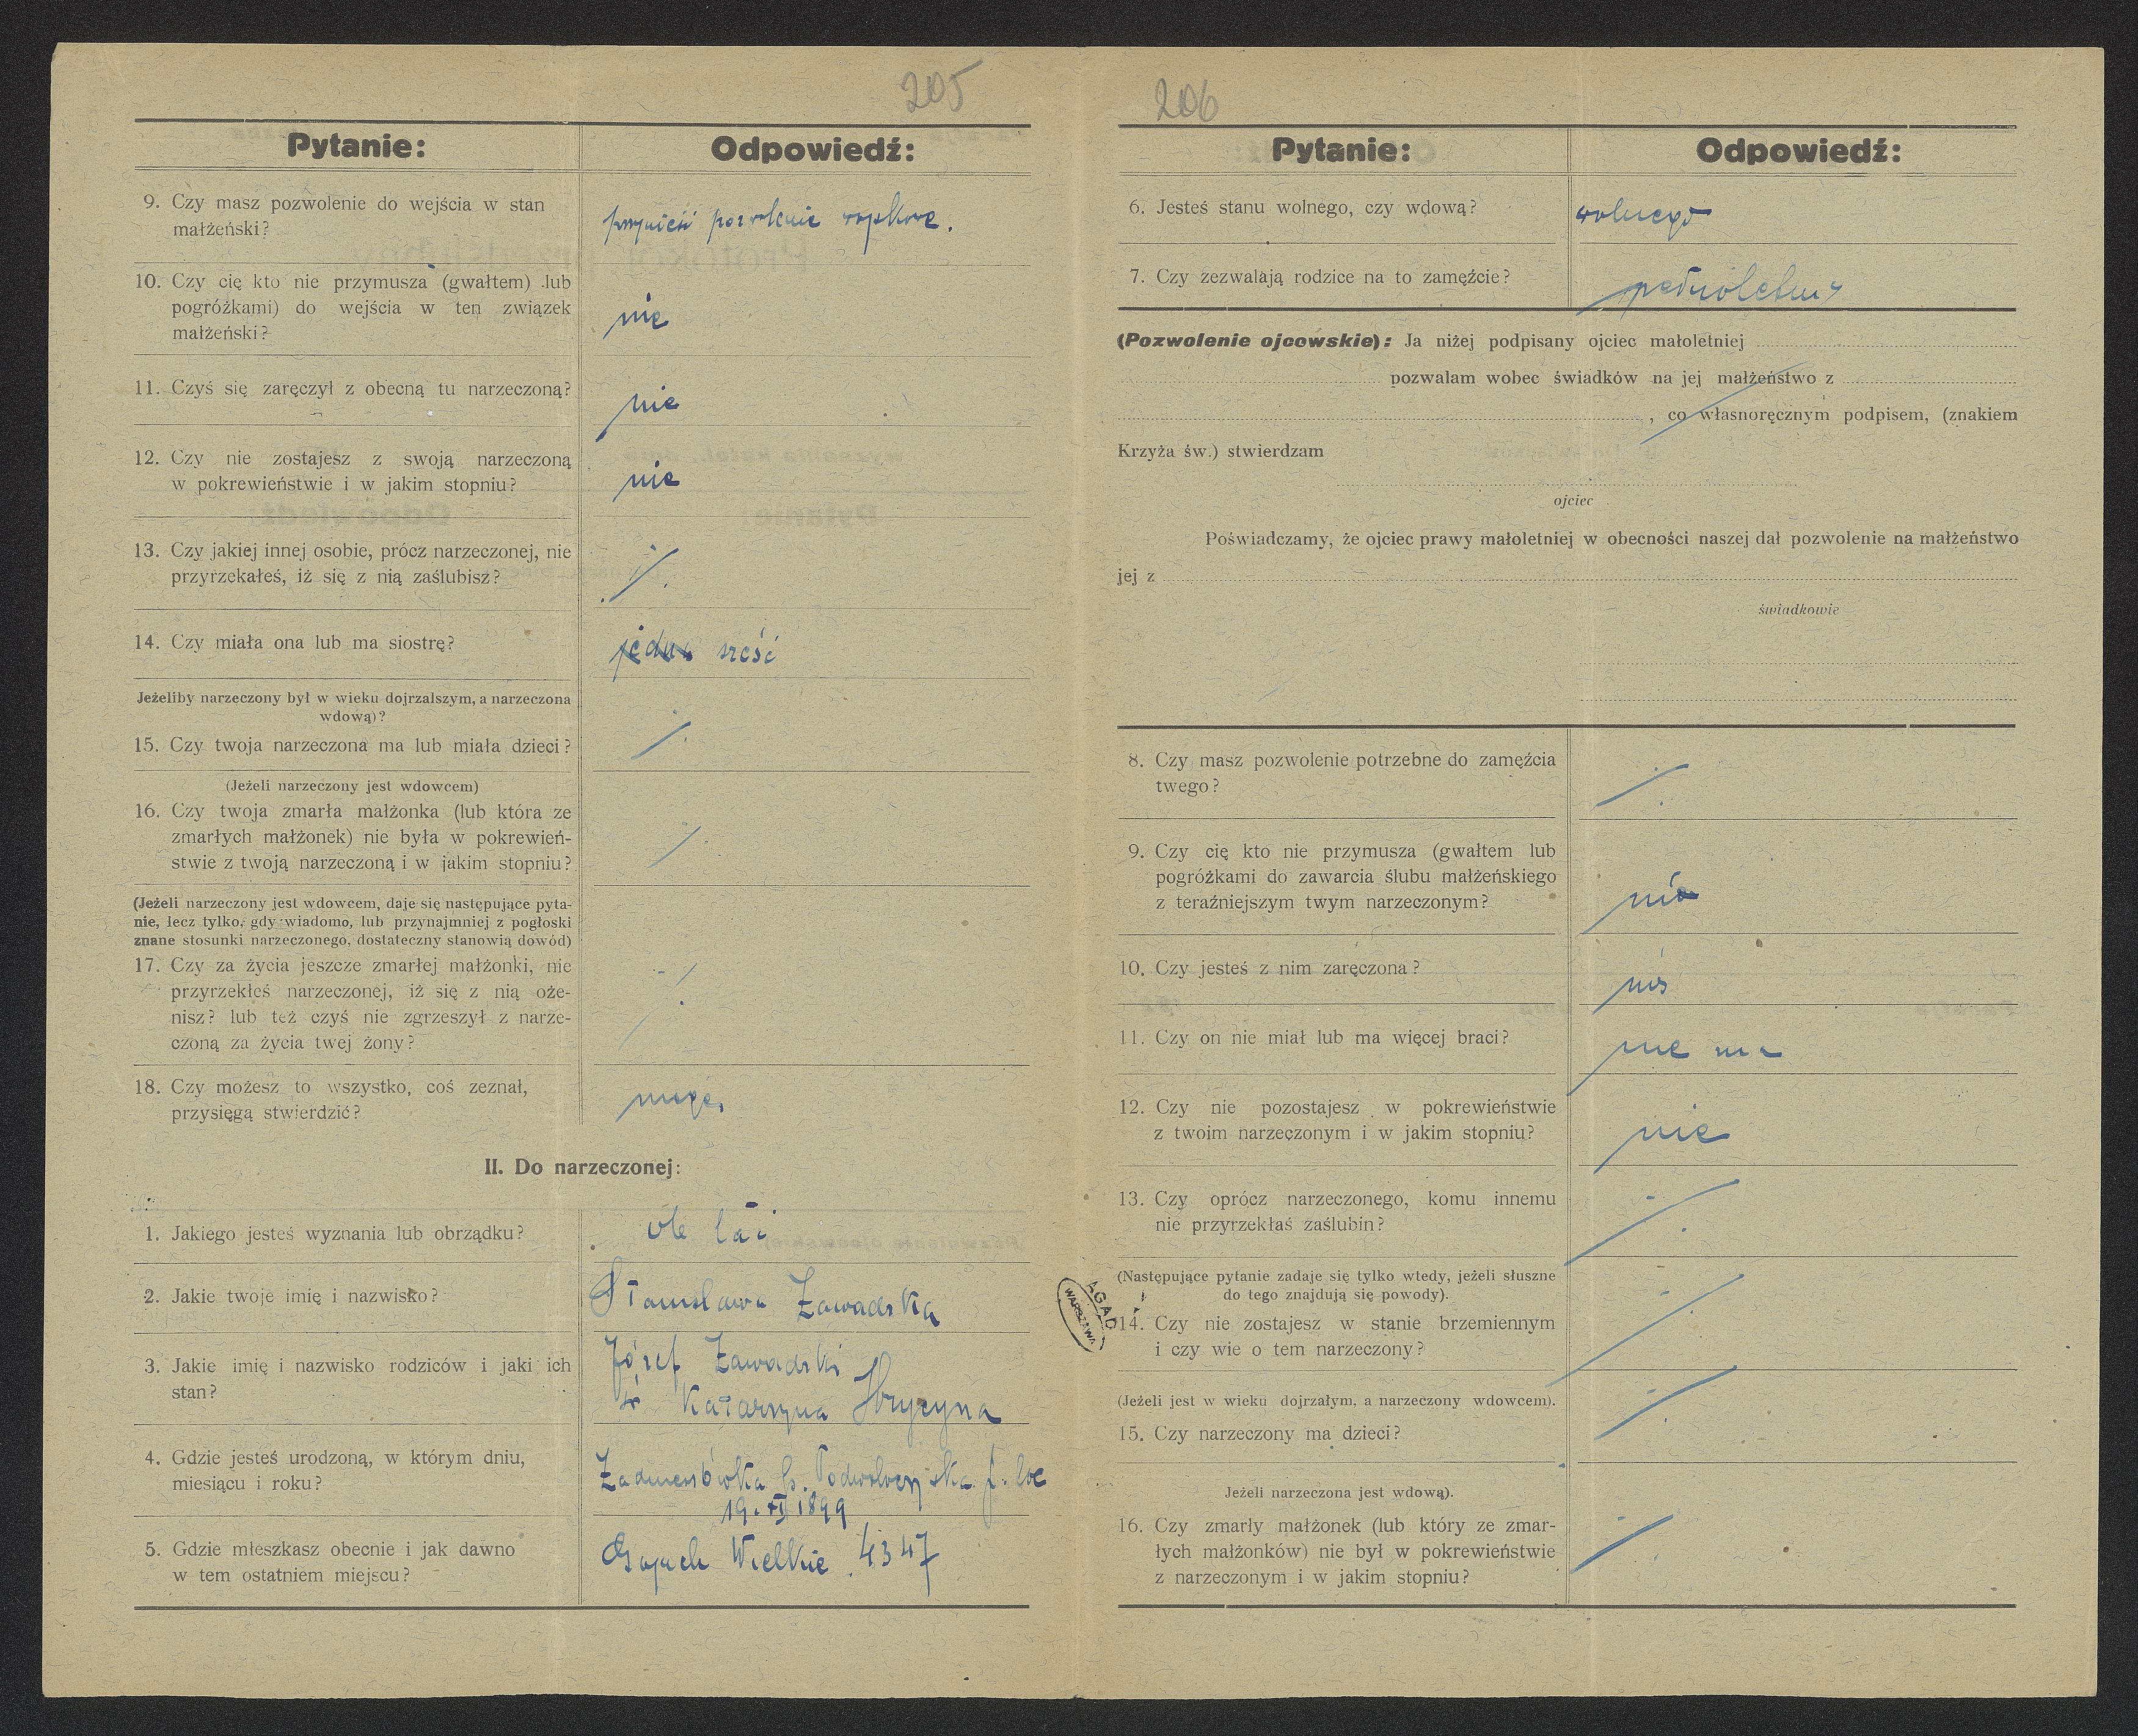 205
Pytanie:
Odpowiedź:
9. Czy masz pozwolenie do wejścia w stan
małżeński?
pozwolenie
10. Czy cię kto nie przymusza (gwałtem) lub
pogróżkami) do wejścia w ten związek
małżeński?
nie
11. Czyś się zaręczył z obecną tu narzeczoną?
nie
12. Czy nie zostajesz z swoją narzeczoną
w pokrewieństwie i w jakim stopniu?
nie
13. Czy jakiej innej osobie, prócz narzeczonej, nie
przyrzekałeś, iż się z nią zaślubisz?
14. Czy miała ona lub ma siostrę?
sześć
Jeżeliby narzeczony był w wieku dojrzalszym, a narzeczona
wdową)?
15. Czy twoja narzeczona ma lub miała dzieci?
(Jeżeli narzeczony jest wdowcem)
16. Czy twoja zmarła małżonka (lub która ze
zmarłych małżonek) nie była w pokrewień-
stwie z twoją narzeczoną i w jakim stopniu?
(Jeżeli narzeczony jest wdowcem, daje się następujące pyta-
nie, lecz tylko, gdy wiadomo, lub przynajmniej z pogłoski
znane stosunki narzeczonego, dostateczny stanowią dowód)
17. Czy za życia jeszcze zmarłej małżonki, nie
przyrzekłeś narzeczonej, iż się z nią oże-
nisz? lub też czyś nie zgrzeszył z narze-
czoną za życia twej żony?
18. Czy możesz to wszystko, coś zeznał,
przysięgą stwierdzić?
mogę
II. Do narzeczonej:
1. Jakiego jesteś wyznania lub obrządku?
2. Jakie twoje imię i nazwisko?
Stanisława Zawadzka
3. Jakie imię i nazwisko rodziców i jaki ich
stan?
Józef Zawadzki
Katarzyna Hrycyna
4. Gdzie jesteś urodzoną, w którym dniu,
miesiącu i roku?
Podwołoczyska
1899
5. Gdzie mieszkasz obecnie i jak dawno
w tem ostatniem miejscu?
Gajach Wielkie 4347
206
Pytanie:
Odpowiedź:
6. Jesteś stanu wolnego, czy wdową?
wolnego
7. Czy zezwalają rodzice na to zamęźcie?
(Pozwolenie ojcowskie): Ja niżej podpisany ojciec małoletniej
pozwalam wobec świadków na jej małżeństwo z
, co własnoręcznym podpisem, (znakiem
Krzyża św.) stwierdzam
ojciec
Poświadczamy, że ojciec prawy małoletniej w obecności naszej dał pozwolenie na małżeństwo
jej z
świadkowie
8. Czy masz pozwolenie potrzebne do zamęźcia
twego?
9. Czy cię kto nie przymusza (gwałtem lub
pogróżkami do zawarcia ślubu małżeńskiego
z teraźniejszym twym narzeczonym?
nie
10. Czy jesteś z nim zaręczona?
nie
11. Czy on nie miał lub ma więcej braci?
nie ma
12. Czy nie pozostajesz w pokrewieństwie
z twoim narzeczonym i w jakim stopniu?
nie
13. Czy oprócz narzeczonego, komu innemu
nie przyrzekłaś zaślubin?
(Następujące pytanie zadaje się tylko wtedy, jeżeli słuszne
do tego znajdują się powody).
AGAD
WARSZAWA
14. Czy nie zostajesz w stanie brzemiennym
i czy wie o tem narzeczony?
(Jeżeli jest w wieku dojrzałym, a narzeczony wdowcem).
15. Czy narzeczony ma dzieci?
Jeżeli narzeczona jest wdową).
16. Czy zmarły małżonek (lub który ze zmar-
łych małżonków) nie był w pokrewieństwie
z narzeczonym i w jakim stopniu?